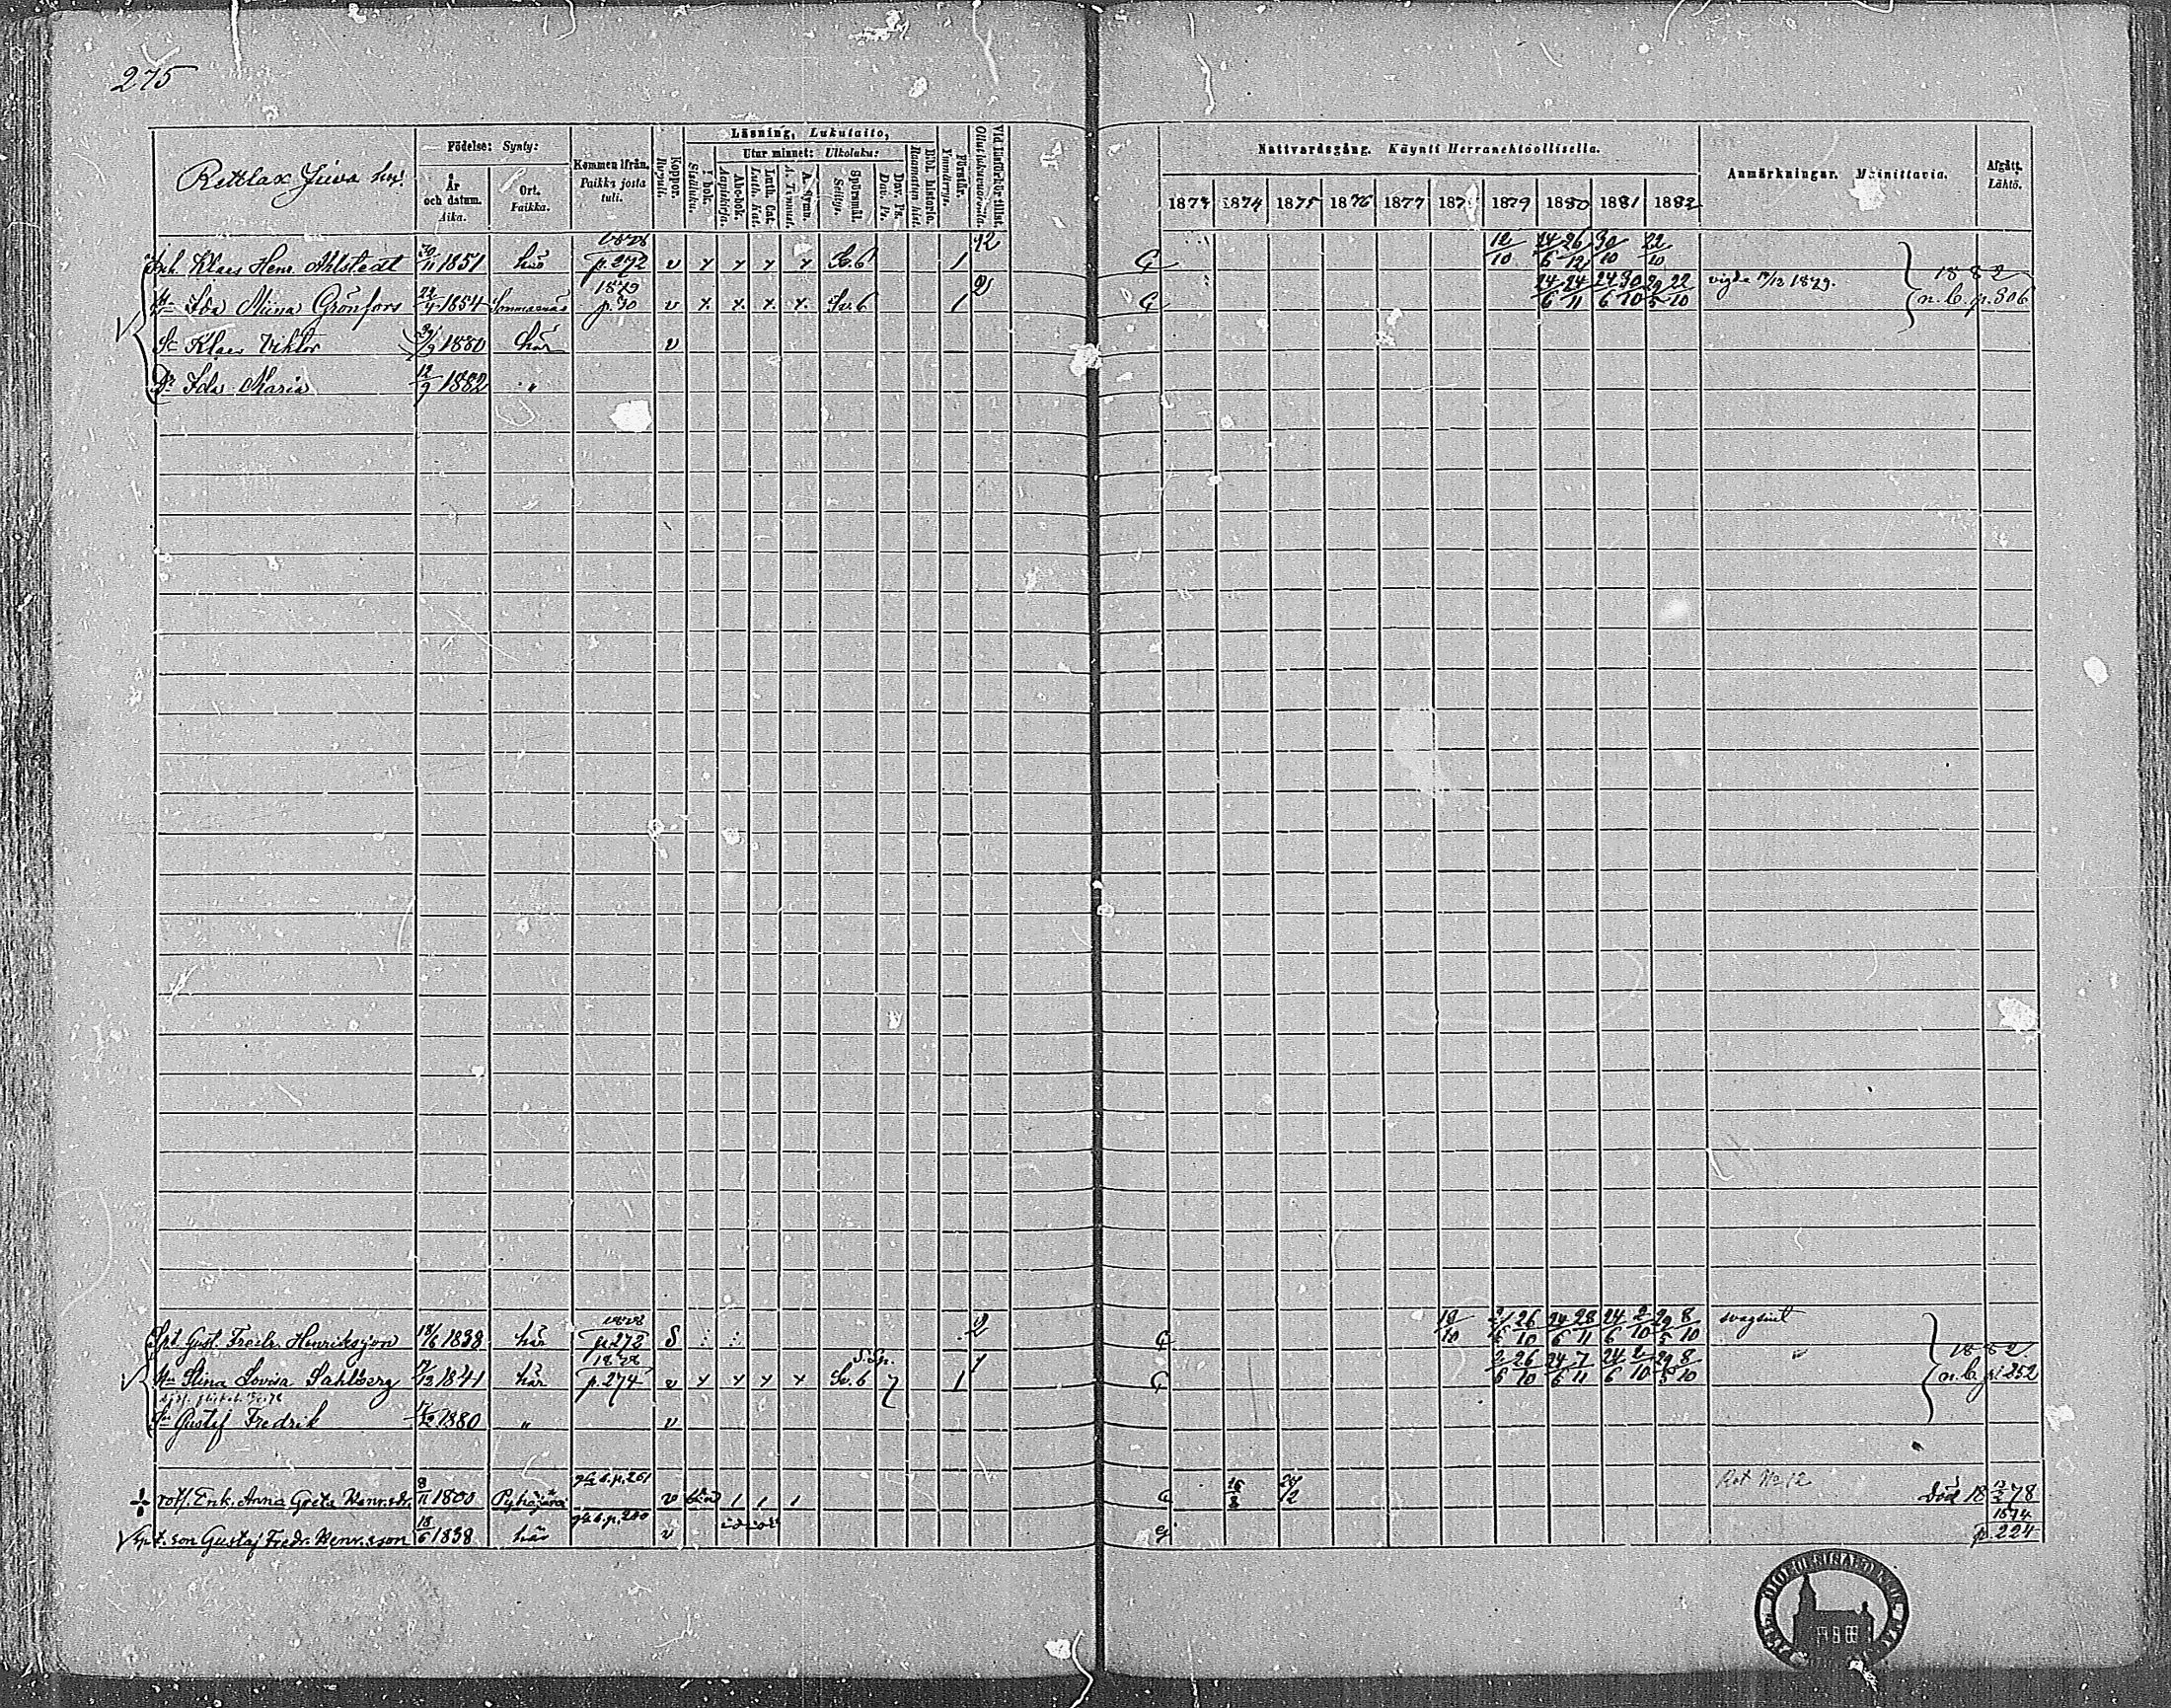 275
Rettlax Juva
Födelse: Synty:
Läsning, Lukutaito,
Utur minnet: Ulkoluku:
År och datum. Aika.
Ort. Paikka.
Kommen ifrån. Paikka josta tuli.
Koppor. Rupuli.
I bok. Sisäluku.
Abcbok. Aapiskirja.
Luth. Cat. Luth. Kat.
A. Symb. A. Tunnust.
Spörsmål. Selitys.
Dav. Ps. Dav. Ps.
Bibl. historia. Raamatun hist.
Förstår. Ymmärrys.
Vid läsförhör tillst. Ollut lukuvuoroilla
Nattvardsgång. Käynti Herranehtoollisella.
Anmärkningar. Muinittavia.
Afgått. Lähtö.
1873 1874 1875 1876 1877 187 1879 1880 1881 1882
Klaes Henr. Ahlstedt 30/11 1851 här 1878 p. 272 v x x x x Sv. 6 1 12 G 12/10 24/6 26/12 30/10 22/10
Hu Ida Miina Grönfors 1854 1879 p. 30 v x x x x Sv. 6 1 2 G 24/6 24/11 24/6 30/10 29/5 22/10 vigda 1879. 1882 n. b. p. 306
Sn Klaes Viktor 1880 här v
Dr Ida Maria 12/9 1882 "
Spt. Gust. Fredr. Henriksson 18/6 1838 här 1878 p. 272 S 2 G 19/10 26/10 24/6 28/11 24/6 2/10 29/5 8/10 svagsint
Hu Stina Lovisa Sahlberg 1841 här 1878 p. 274 v x x x x Sv. 6 7 1 1 G 2/6 26/10 24/6 7/11 24/6 2/10 29/5 8/10 " 1882 n. b. p. 252
Sn Gustaf Fredrik 1880 " v
Rot No 12
rotf. Enk. Anna Greta Henr.dr. 8/11 1800 Pyhäjärvi gl. b. p. 261 v blind 1 1 1 G Död 78
t. son Gustaf Fredr. Henr.sson 18/6 1838 här gl. b. p. 260 v idiot g 1874 p. 224